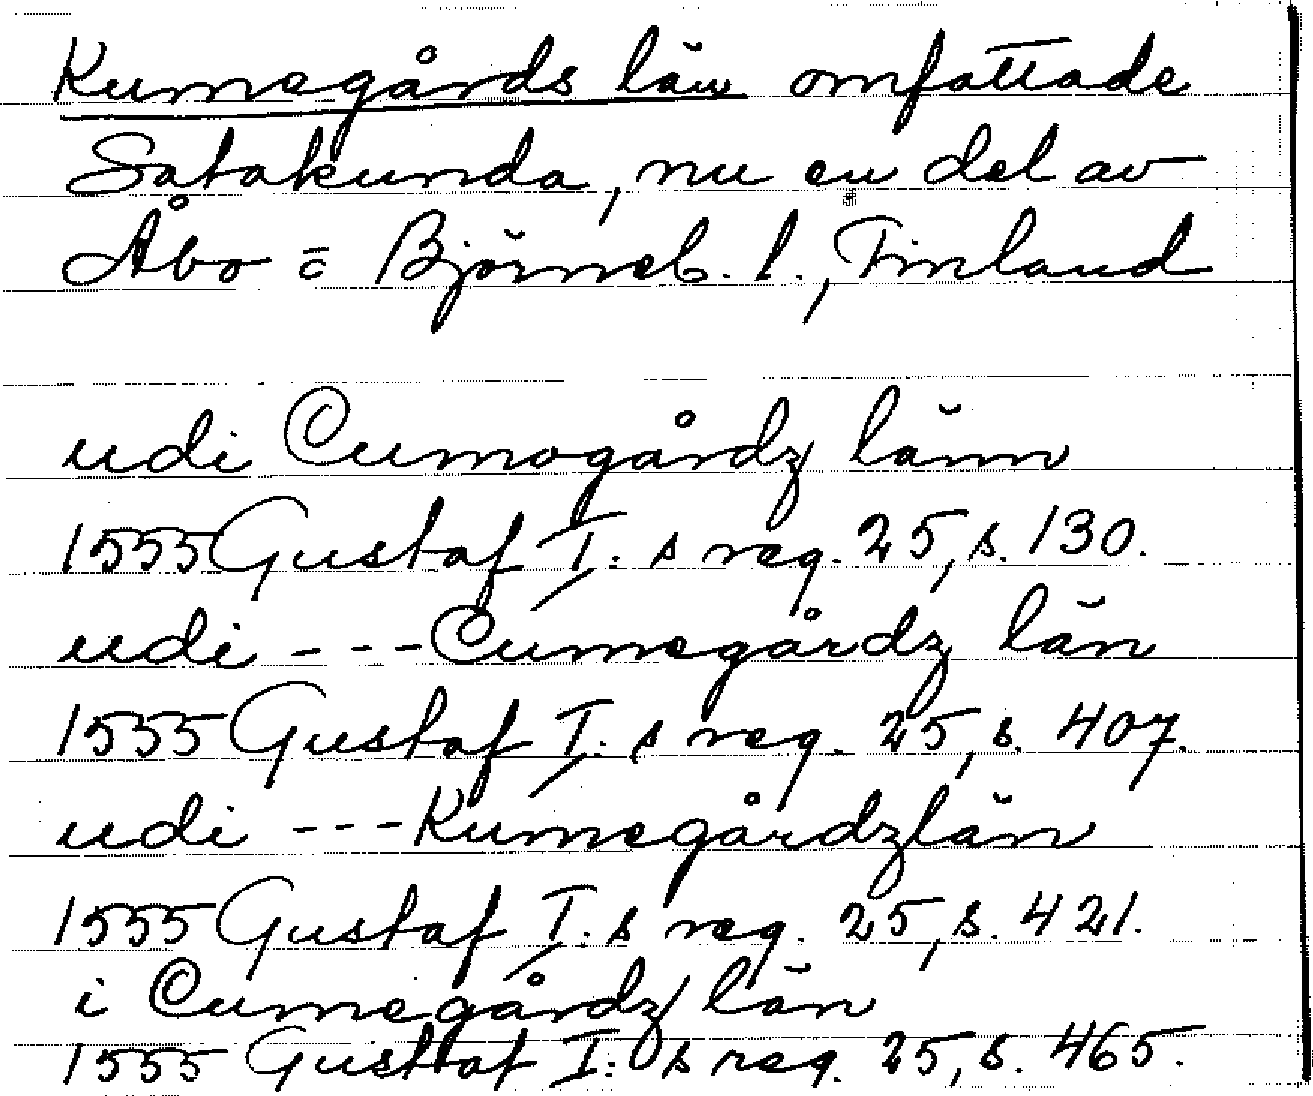 Kumegårds län omfattade
Satakunda, nu en del av
Åbo o Björneb. l., Finland
udi Cumogårdz länn
1555 Gustaf I: s reg. 25, s. 130.
udi --- Cumegårdz län
1555 Gustaf I: s reg. 25, s. 407.
udi --- Kumegårdzlän
1555 Gustaf I: s reg. 25, s. 421.
i Cumegårdz län
1555 Gustaf I: s reg. 25, s. 465.